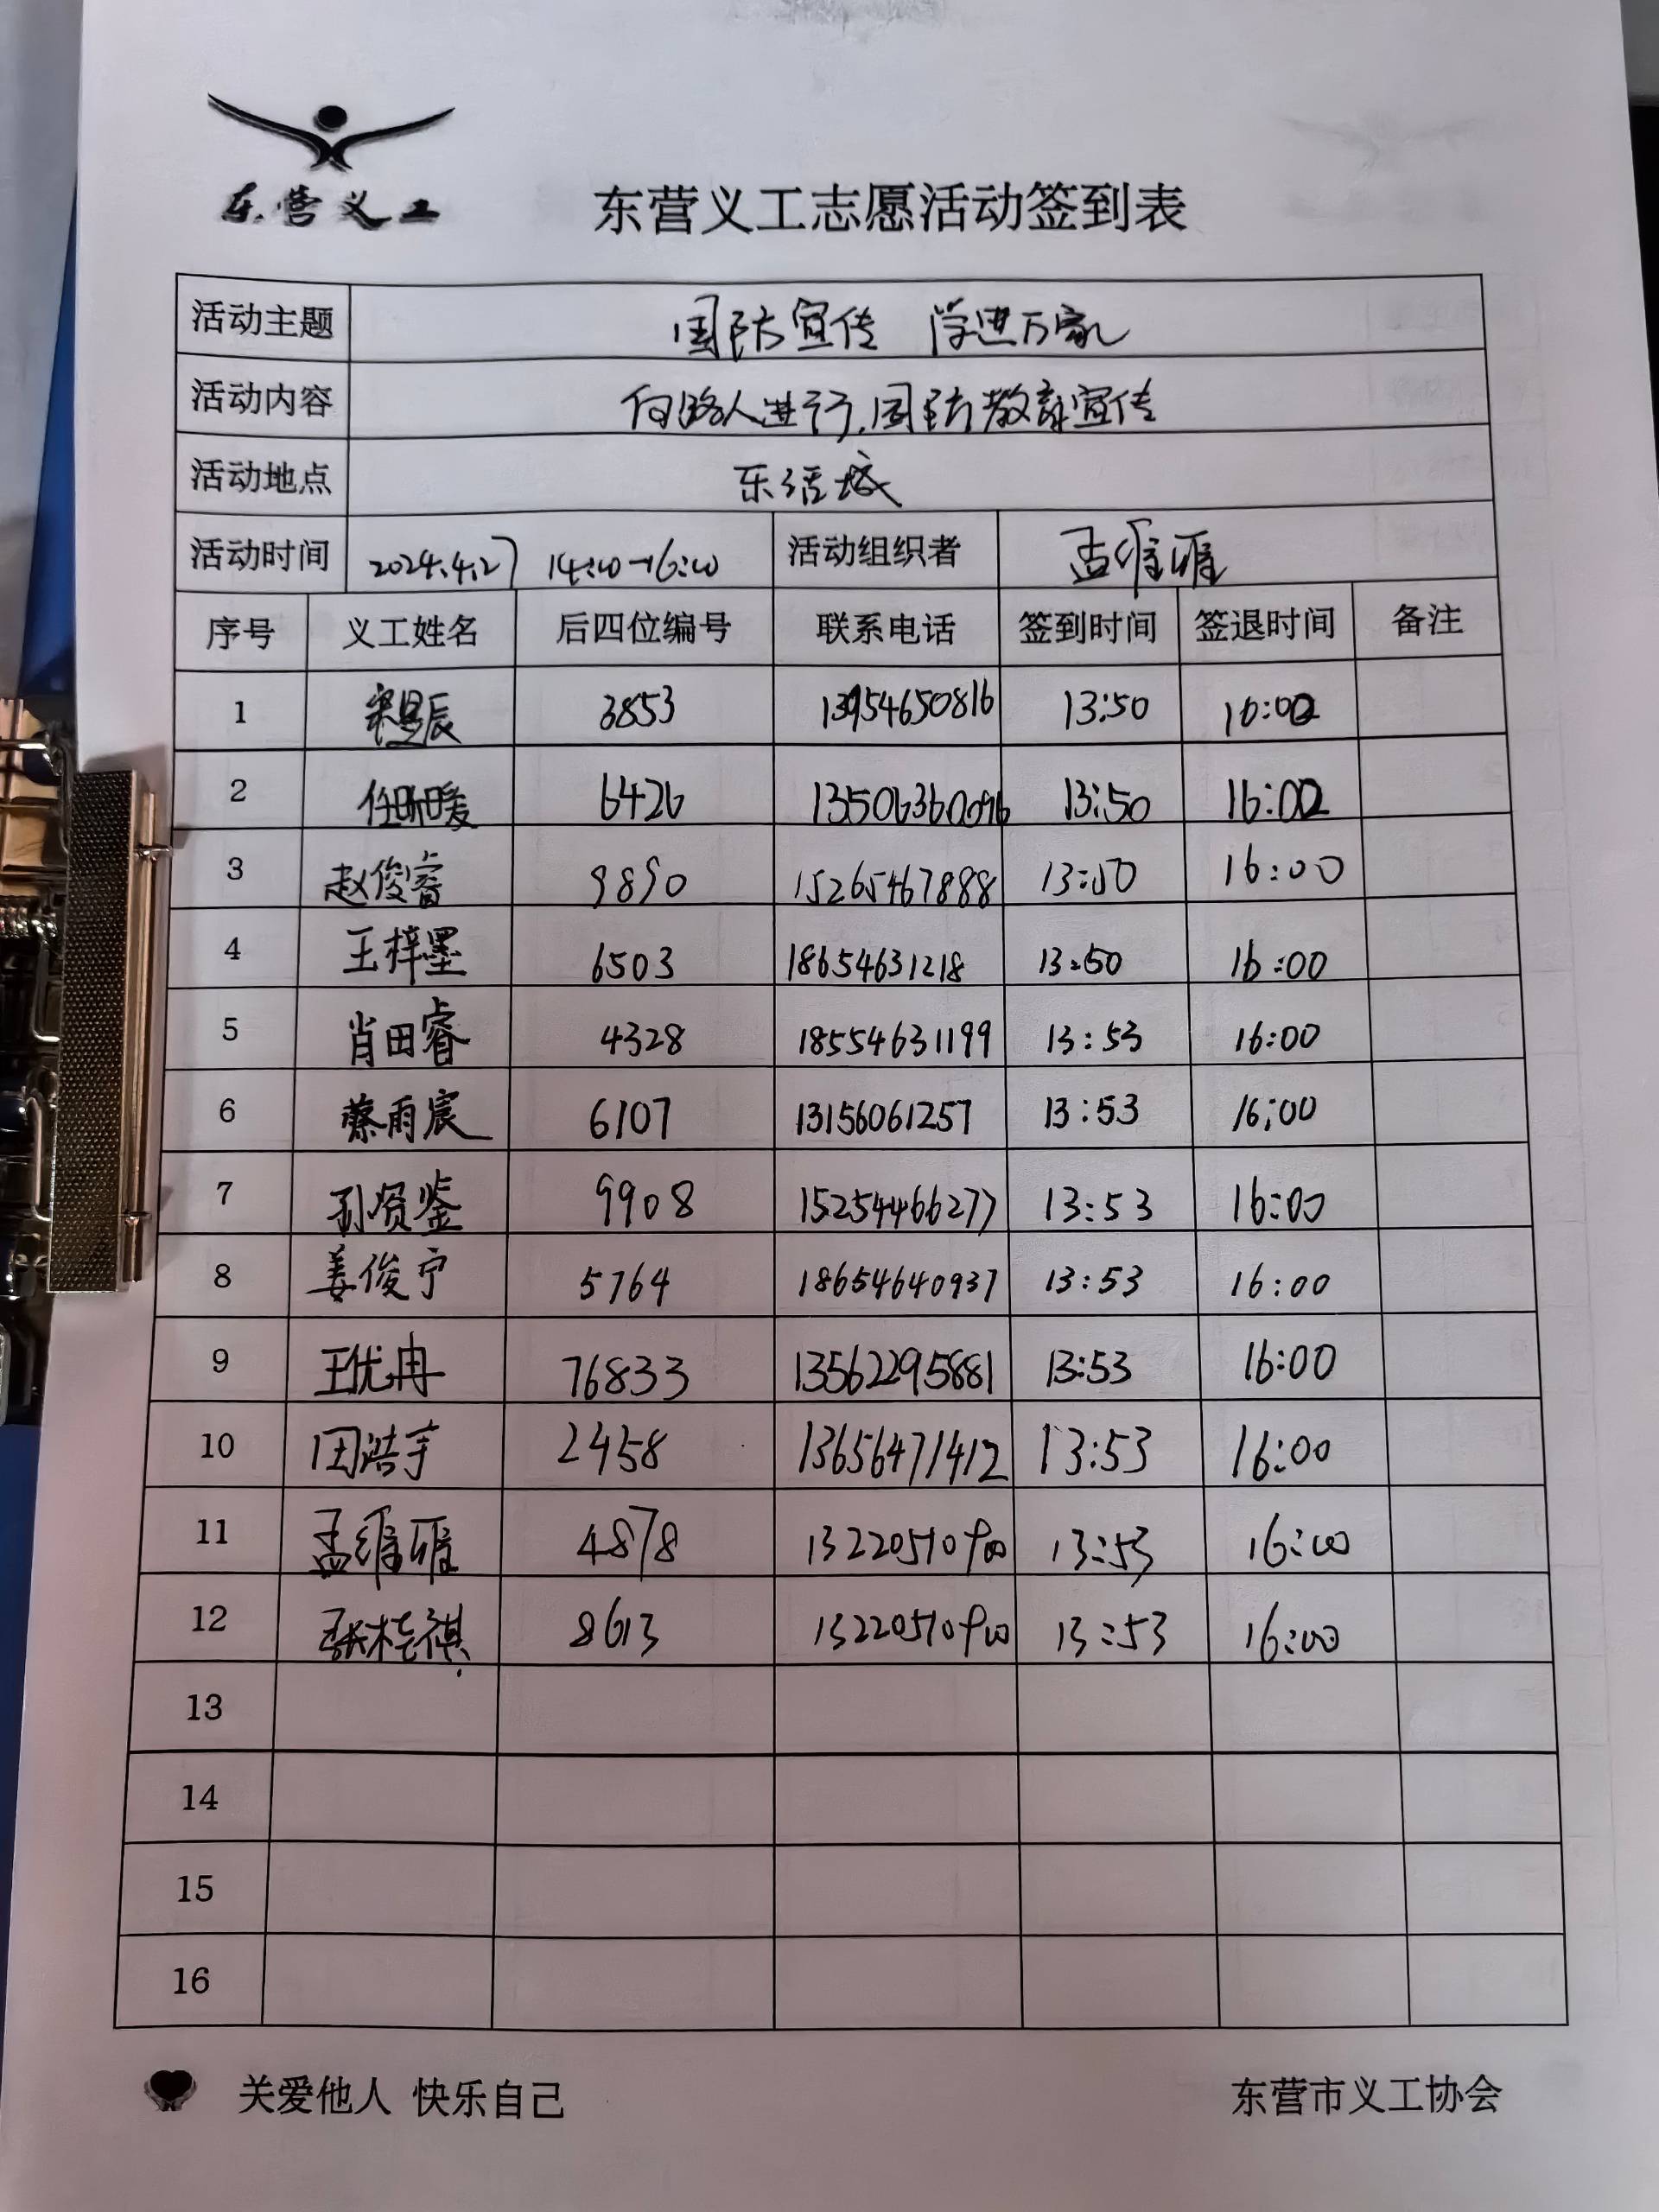 东营义工
东营义工志愿活动签到表
活动主题 国防宣传 学进万家
活动内容 向路人进行国防教育宣传
活动地点 东活城
活动时间 2024.4.27 14:00-16:00 活动组织者 孟维雁
序号 义工姓名 后四位编号 联系电话 签到时间 签退时间 备注
1 宋昱辰 3853 13954650816 13:50 16:00
2 任昕暖 6426 13506360096 13:50 16:00
3 赵俊睿 9890 15265467888 13:50 16:00
4 王梓墨 6503 18654631218 13:50 16:00
5 肖田睿 4328 18554631199 13:53 16:00
6 蔡雨宸 6107 13156061257 13:53 16:00
7 孙贤鉴 9908 15254466277 13:53 16:00
8 姜俊宁 5764 18654640937 13:53 16:00
9 王优冉 76833 13562295881 13:53 16:00
10 田浩宇 2458 13656471412 13:53 16:00
11 孟维雁 4878 13:53 16:00
12 张桂祺 8613 13:53 16:00
13
14
15
16
关爱他人 快乐自己 东营市义工协会